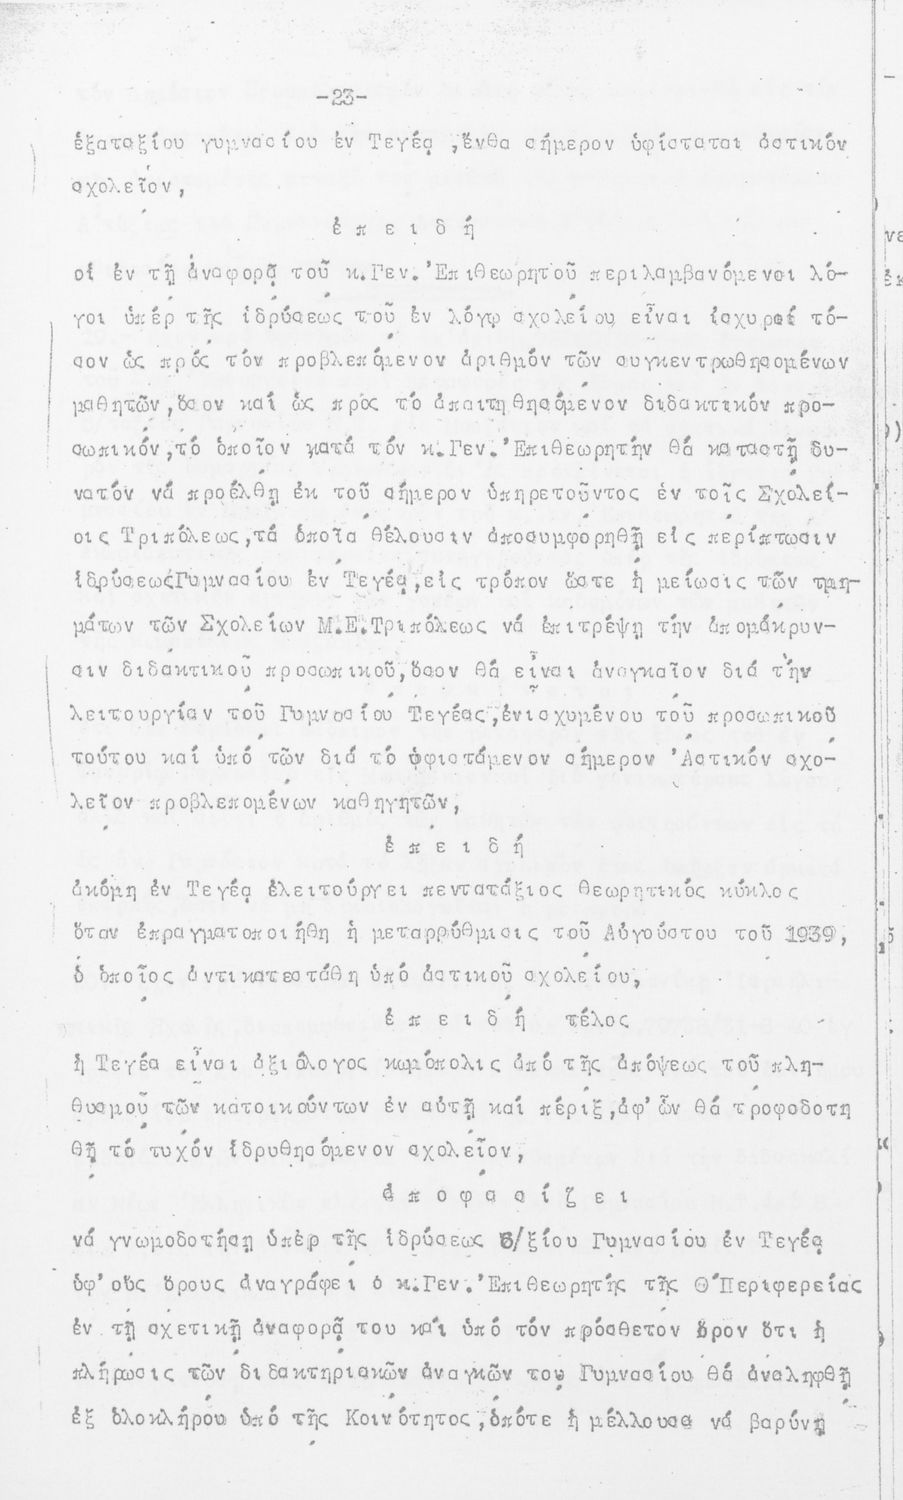 -23-
ἑξαταξίου γυμνασίου ἐν Τεγέᾳ ,ἔνθα σήμερον ὑφίσταται ἀστικόν
σχολεῖον,
ἐ π ε ι δ ή
οἱ ἐν τῇ ἀναφορᾷ τοῦ κ.Γεν.Ἐπιθεωρητοῦ περιλαμβανόμενοι λό-
γοι ὑπέρ τῆς ἱδρύσεως τοῦ ἐν λόγῳ σχολείου εἶναι ἰσχυροί τό-
σον ὡς πρός τόν προβλεπόμενον ἀριθμόν τῶν συγκεντρωθησομένων
μαθητῶν,ὅσον καί ὡς πρός τό ἀπαιτηθησόμενον διδακτικόν προ-
σωπικόν,τό ὁποῖον κατά τόν κ.Γεν.Ἐπιθεωρητήν θά καταστῇ δυ-
νατόν νά προέλθῃ ἐκ τοῦ σήμερον ὑπηρετοῦντος ἐν τοῖς Σχολεί-
οις Τριπόλεως,τά ὁποῖα θέλουσιν ἀποσυμφορηθῇ εἰς περίπτωσιν
ἱδρύσεωςΓυμνασίου ἐν Τεγέᾳ,εἰς τρόπον ὥστε ἡ μείωσις τῶν τμη-
μάτων τῶν Σχολείων Μ.Ε.Τριπόλεως νά ἐπιτρέψῃ τήν ἀπομάκρυν-
σιν διδακτικοῦ προσωπικοῦ,ὅσον θά εἶναι ἀναγκαῖον διά τὴν
λειτουργίαν τοῦ Γυμνασίου Τεγέας,ἐνισχυμένου τοῦ προσωπικοῦ
τούτου καί ὑπό τῶν διά τό ὑφιστάμενον σήμερον Ἀστικόν σχο-
λεῖον προβλεπομένων καθηγητῶν,
ἐ π ε ι δ ή
ἀκόμη ἐν Τεγέᾳ ἐλειτούργει πεντατάξιος θεωρητικός κύκλος
ὅταν ἐπραγματοποιήθη ἡ μεταρρύθμισις τοῦ Αὐγούστου τοῦ 1939,
ὁ ὁποῖος ἀντικατεστάθη ὑπό ἀστικοῦ σχολείου,
ἐ π ε ι δ ή τέλος
ἡ Τεγέα εἶναι ἀξιόλογος κωμόπολις ἀπό τῆς ἀπόψεως τοῦ πλη-
θυσμοῦ τῶν κατοικούντων ἐν αὐτῇ καί πέριξ,ἀφ'ὧν θά τροφοδοτη
θῇ τό τυχόν ἱδρυθησόμενον σχολεῖον,
ἀ π ο φ α σ ί ζ ε ι
νά γνωμοδοτήσῃ ὑπέρ τῆς ἱδρύσεως 6/ξίου Γυμνασίου ἐν Τεγέᾳ
ὑφ'οὕς ὅρους ἀναγράφει ὁ κ.Γεν.Ἐπιθεωρητής τῆς Θ'Περιφερείας
ἐν τῇ σχετικῇ ἀναφορᾷ του καί ὑπό τόν πρόσθετον ὅρον ὅτι ἡ
πλήρωσις τῶν διδακτηριακῶν ἀναγκῶν του Γυμνασίου θά ἀναληφθῇ
ἐξ ὁλοκλήρου ὑπό τῆς Κοινότητος,ὁπότε ἡ μέλλουσα νά βαρύνῃ